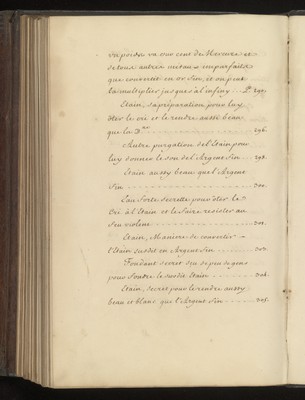 un poids en
et de tous autres métaux imparfaits
que convertit en or fin, et on peut
la multiplier jusques à l'infiny
Etain, sa préparation pour luy
ôter le cri et le rendre aussi beau
que la D.
Autre purgation del Etain pour
luy donner le son del Argent fin
Etain aussy beau que l'Argent
fin
Eau forte secrette pour ôter le
Cri à l'Etain et le faire resister au
feu violent
Etain, Maniere de convertir
l'Etain susdit en Argent fin
Fondant secret sçu de peu de gens
pour fondre le susdit Etain
Etain, secret pour le rendre aussy
beau et blanc que l'Argent fin